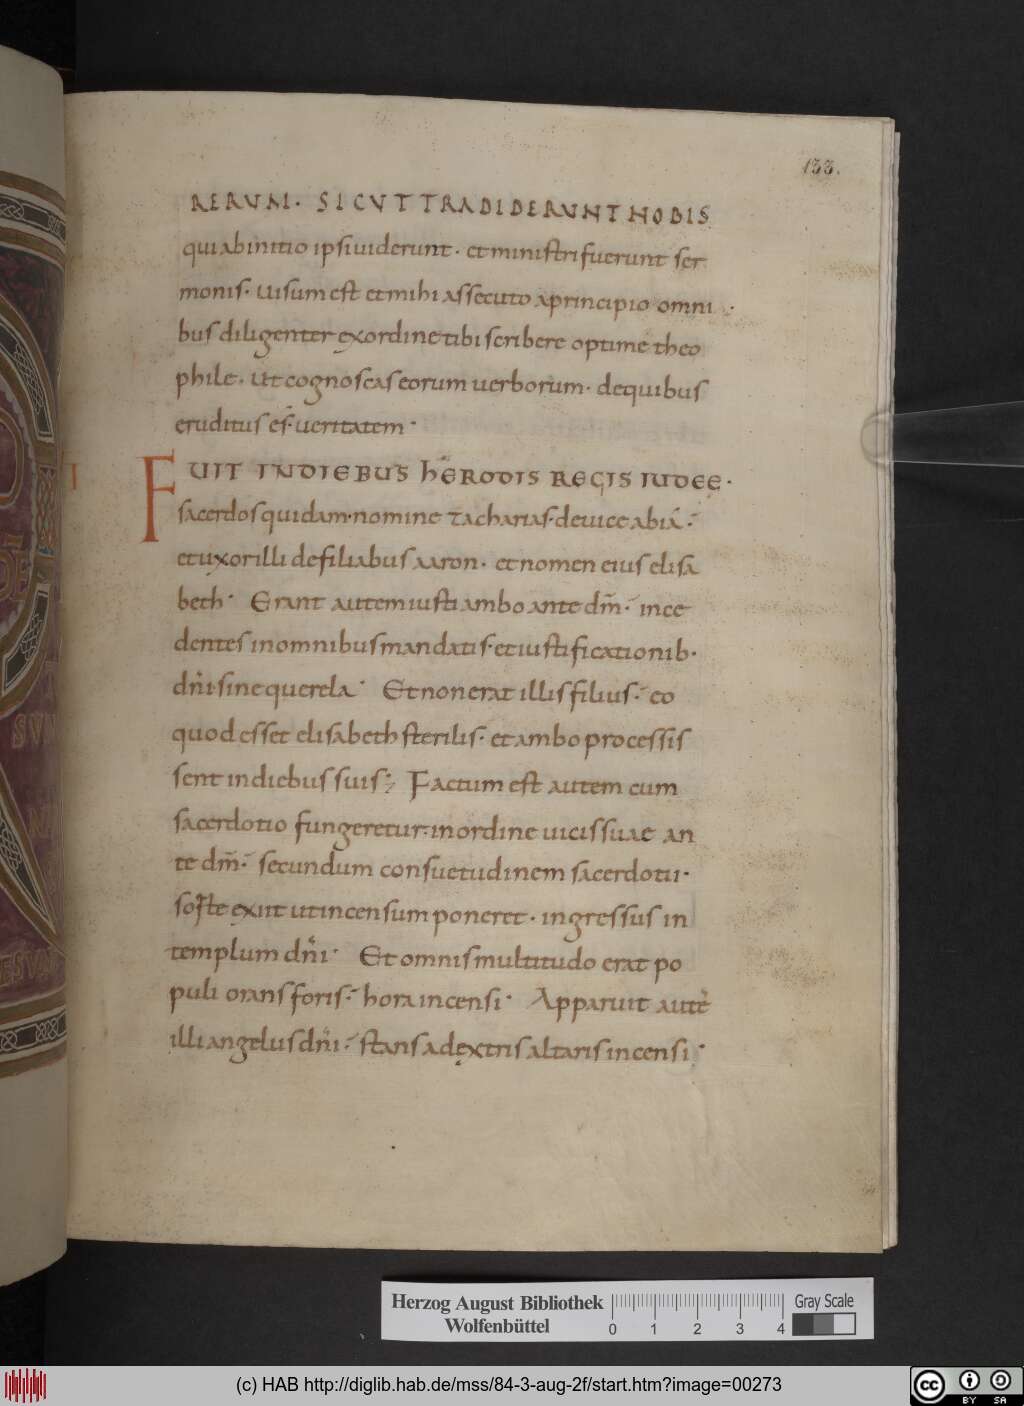 133.
RERUM· SICUT TRADIDERUNT NOBIS
qui ab initio ipsi uiderunt· et ministri fuerunt ser
monis· uisum est et mihi assecuto a principio omni
bus diligenter ex ordine tibi scribere optime theo
phile· ut cognoscas eorum uerborum· de quibus
eruditus es· ueritatem·
FUIT IN DIEBUS hERODIS REGIS IUDEĘ·
sacerdos quidam· nomine zacharias· de uice abia·
et uxor illi de filiabus aaron· et nomen eius elisa
beth· Erant autem iusti ambo ante dm̄· ince
dentes in omnibus mandatis· et iustificationib·
dn̄i· sine querela· Et non erat illis filius· eo
quod esset elisabeth sterilis· et ambo processis
sent in diebus suis; Factum est autem cum
sacerdotio fungeretur· in ordine uicis suae an
te dm̄· secundum consuetudinem sacerdotii·
sorte exiit ut incensum poneret· ingressus in
templum dn̄i· Et omnis multitudo erat po
puli orans foris· hora incensi· Apparuit autē
illi angelus dn̄i· stans a dextris altaris incensi·
SVN
ESVM
Herzog August Bibliothek
Wolfenbüttel
0 1 2 3 4
Gray Scale
(c) HAB http://diglib.hab.de/mss/84-3-aug-2f/start.htm?image=00273
cc BY SA